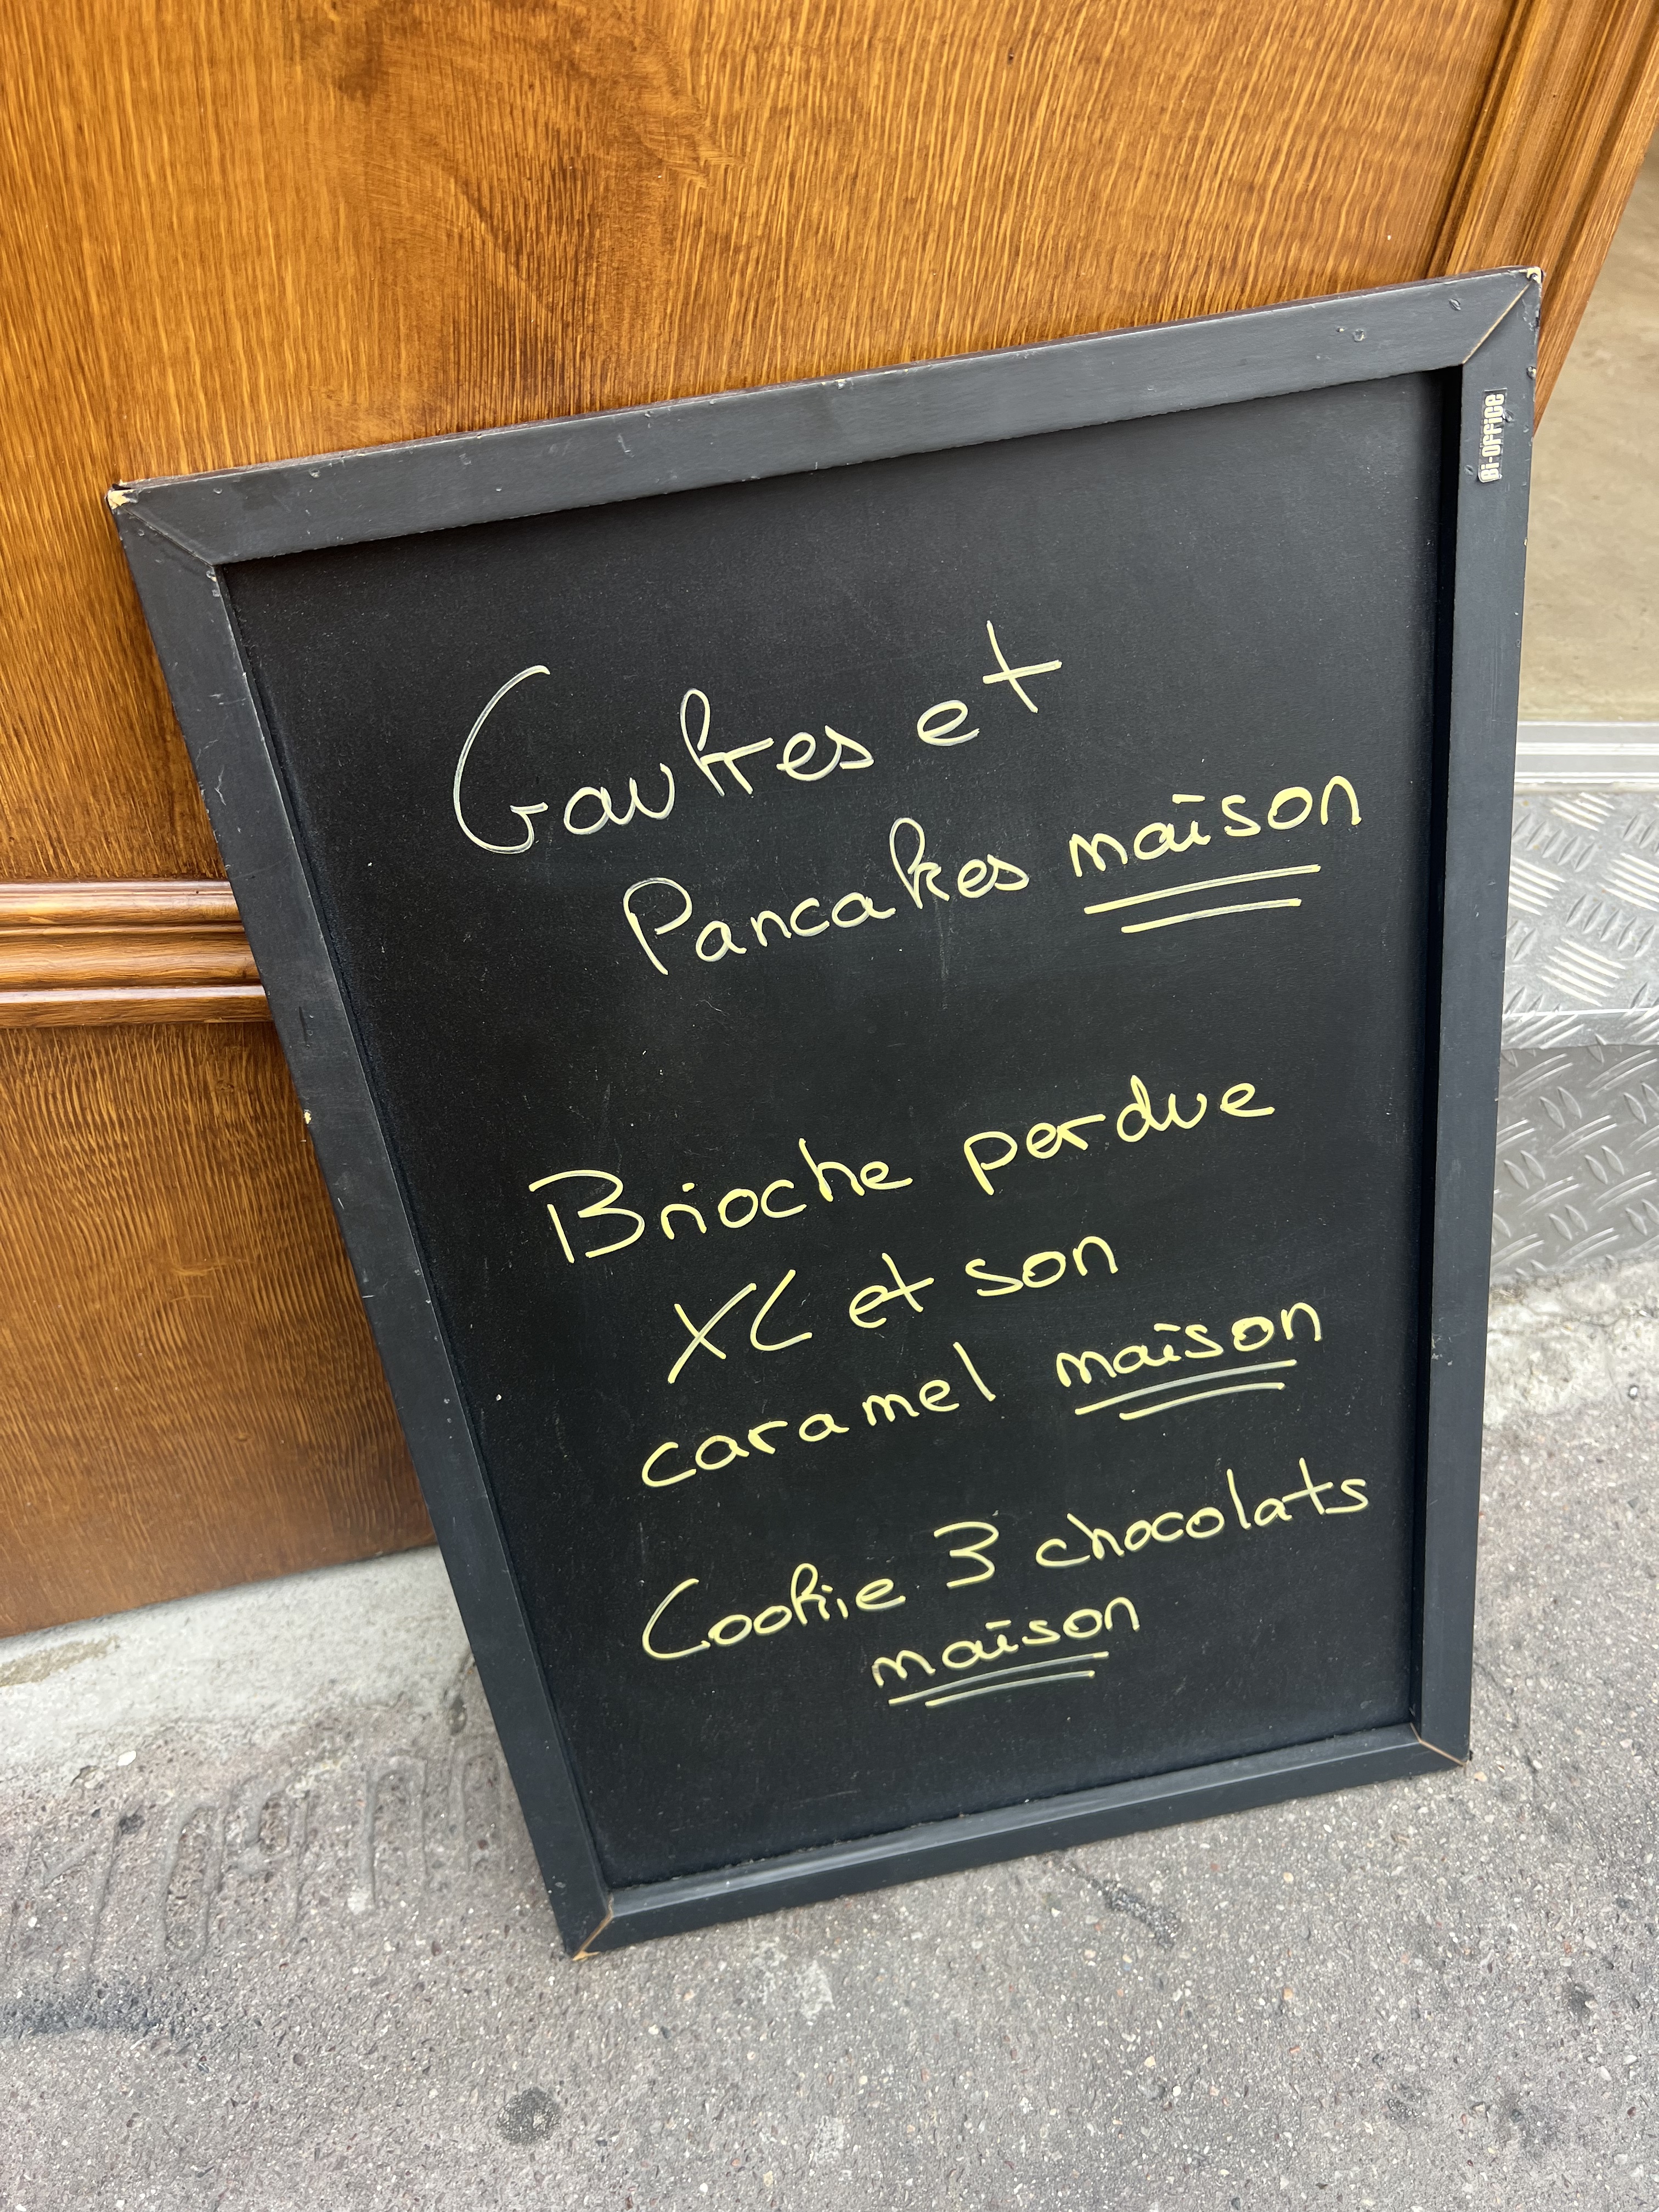 Gaufres et
Pancakes maison
Brioche perdue
XL et son
caramel maison
Cookie 3 chocolats
maison
Bi-Office